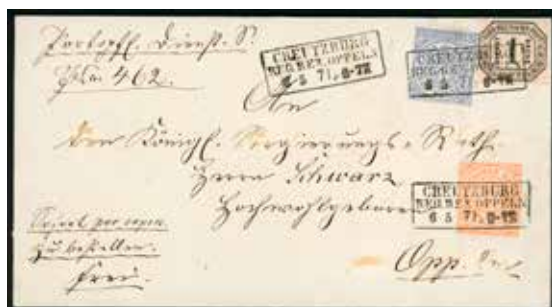 Portopfl. Dienst S.
No. 462.
CREUTZBURG
REG. BEZ. OPPELN
6 5 71 6-7N
CREUTZBURG
REG. BEZ. OPPELN
6 5 6-7N
1
An
den Königl. Regierungs-Rath
Herrn Schwarz
Hochwohlgeboren
CREUTZBURG
REG. BEZ. OPPELN
6 5 71 6-7N
Sofort per expr.
zu bestellen.
frei.
Oppeln